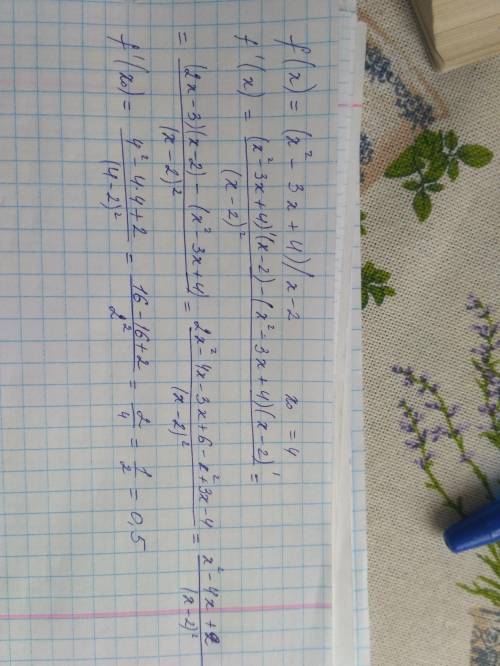 f(x) = (x² - 3x + 4)/x - 2 x₀ = 4
f'(x) = (x² - 3x + 4)'(x - 2) - (x² - 3x + 4)(x - 2)' / (x - 2)² =
= (2x - 3)(x - 2) - (x² - 3x + 4) / (x - 2)² = 2x² - 4x - 3x + 6 - x² + 3x - 4 / (x - 2)² = x² - 4x + 2 / (x - 2)²
f'(x₀) = 4² - 4·4 + 2 / (4 - 2)² = 16 - 16 + 2 / 2² = 2/4 = 1/2 = 0,5